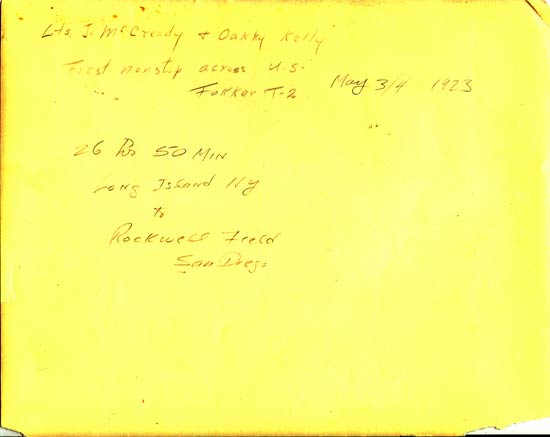 Lts. J. McCready + Oakky Kelly
First nonstop across U.S.
Fokker T-2 May 3/4 1923
26 hrs 50 MIN
Long Island NY
to
Rockwell Field
San Diego